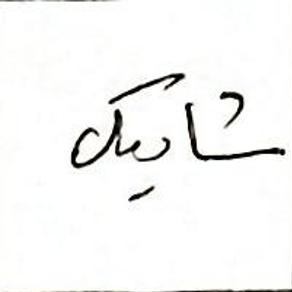 شاپیک